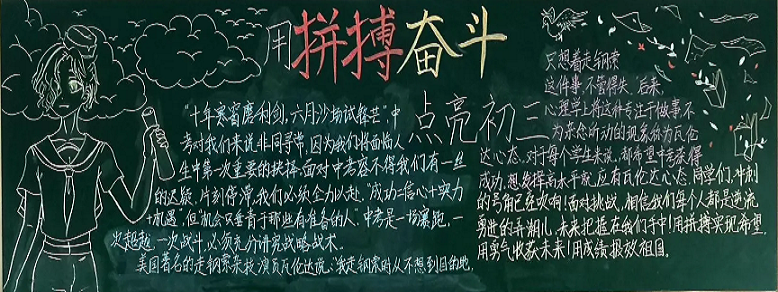 用拼搏奋斗
点亮初三
“十年寒窗磨利剑，六月沙场试锋芒”，中
考对我们来说非同寻常，因为我们将面临人
生中第一次重要的抉择。面对中考容不得我们有一丝
的迟疑，片刻停滞，我们必须全力以赴。“成功=信心+实力
+机遇，但“机会只垂青于那些有准备的人”，中考是一场赛跑，一
次超越，一次战斗，必须充分讲究战略战术。
美国著名的走钢索杂技演员瓦伦达说：“我走钢索时从不想到目的地，
只想着走钢索
这件事，不管得失。后来，
心理学上将这种专注于做事不
为余您所动的现象称为瓦伦
达心态，对于每个学生来说，都希望中考获得
成功，想发挥高水平就应有瓦伦达心态。同学们，冲刺
的号角已经吹响！面对挑战，相信我们每个人都是逆流
勇进的弄潮儿，未来把握在我们手中！用拼搏实现希望，
用勇气收获未来！用成绩报放祖国。